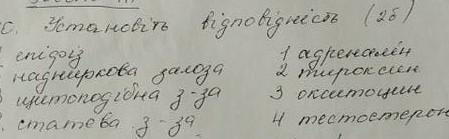 Установіть відповідність (2б)
епіфіз 1 адреналін
надниркова залоза 2 тироксин
щитоподібна з-за 3 окситоцин
статева з-за 4 тестостерон